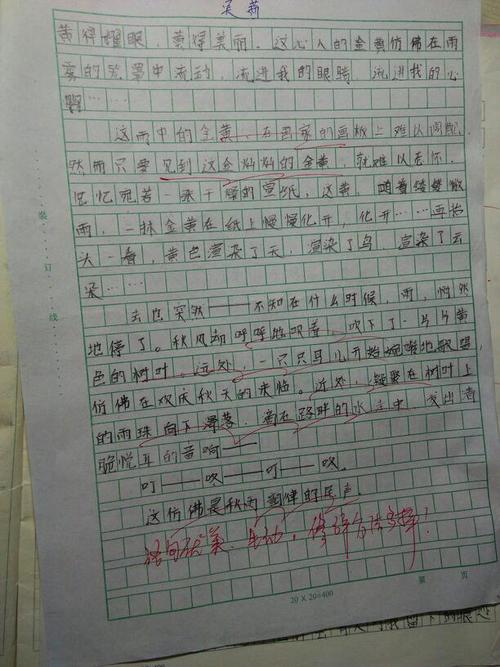 黄得耀眼,黄得美丽。这沁人的金黄仿佛在雨
雾的笼罩中流动,流进我的眼睛,流进我的心
啊……
这雨中的金黄,在画家的画板上难以调配,
然而只要见到这金灿灿的金黄,就难以忘怀。
记忆宛若一张干瘪的宣纸,这黄,随着缕缕微
雨,一抹金黄在纸上慢慢化开,化开……再抬
头一看,黄色渲染了天,渲染了鸟,渲染了云
朵……
去也突然——不知在什么时候,雨,悄然
地停了。秋风却呼呼地吹着,吹下了一片片黄
色的树叶。远处,一只只鸟儿开始婉啭地歌唱,
仿佛在欢庆秋天的来临。近处,凝聚在树叶上
的雨珠向下滑落,滴在路畔的水洼中,发出清
脆悦耳的音响——
叮——咚——叮——咚
这仿佛是秋雨韵律的尾声
语句优美、生动,修辞方法多样!
装
订
线
20×20=400
第 页